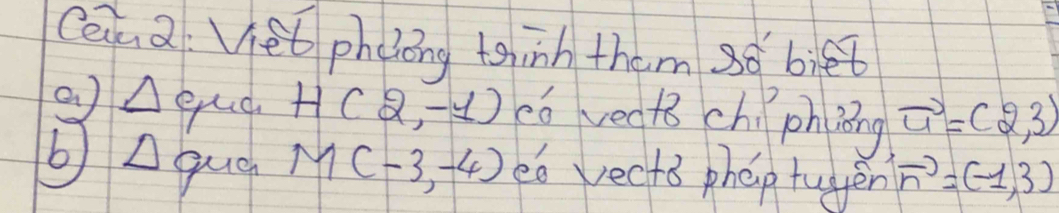 Câu 2: Viết phương trình tham số biết
a) Δ qua H(2,-1) có vectơ chỉ phương u⃗=(2,3)
b) Δ qua M(-3,-4) có vectơ pháp tuyến n⃗=(-1,3)